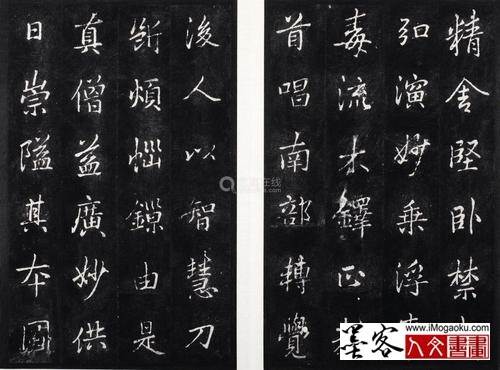 精舍堅卧禁
弘演妙乘浮
毒流木鐸正
首唱南部轉覺
後人以智慧刀
斷煩惱鏁由是
真僧益廣妙供
日崇隘其本國
在线
墨客
www.iMogaoku.com
人文書畫